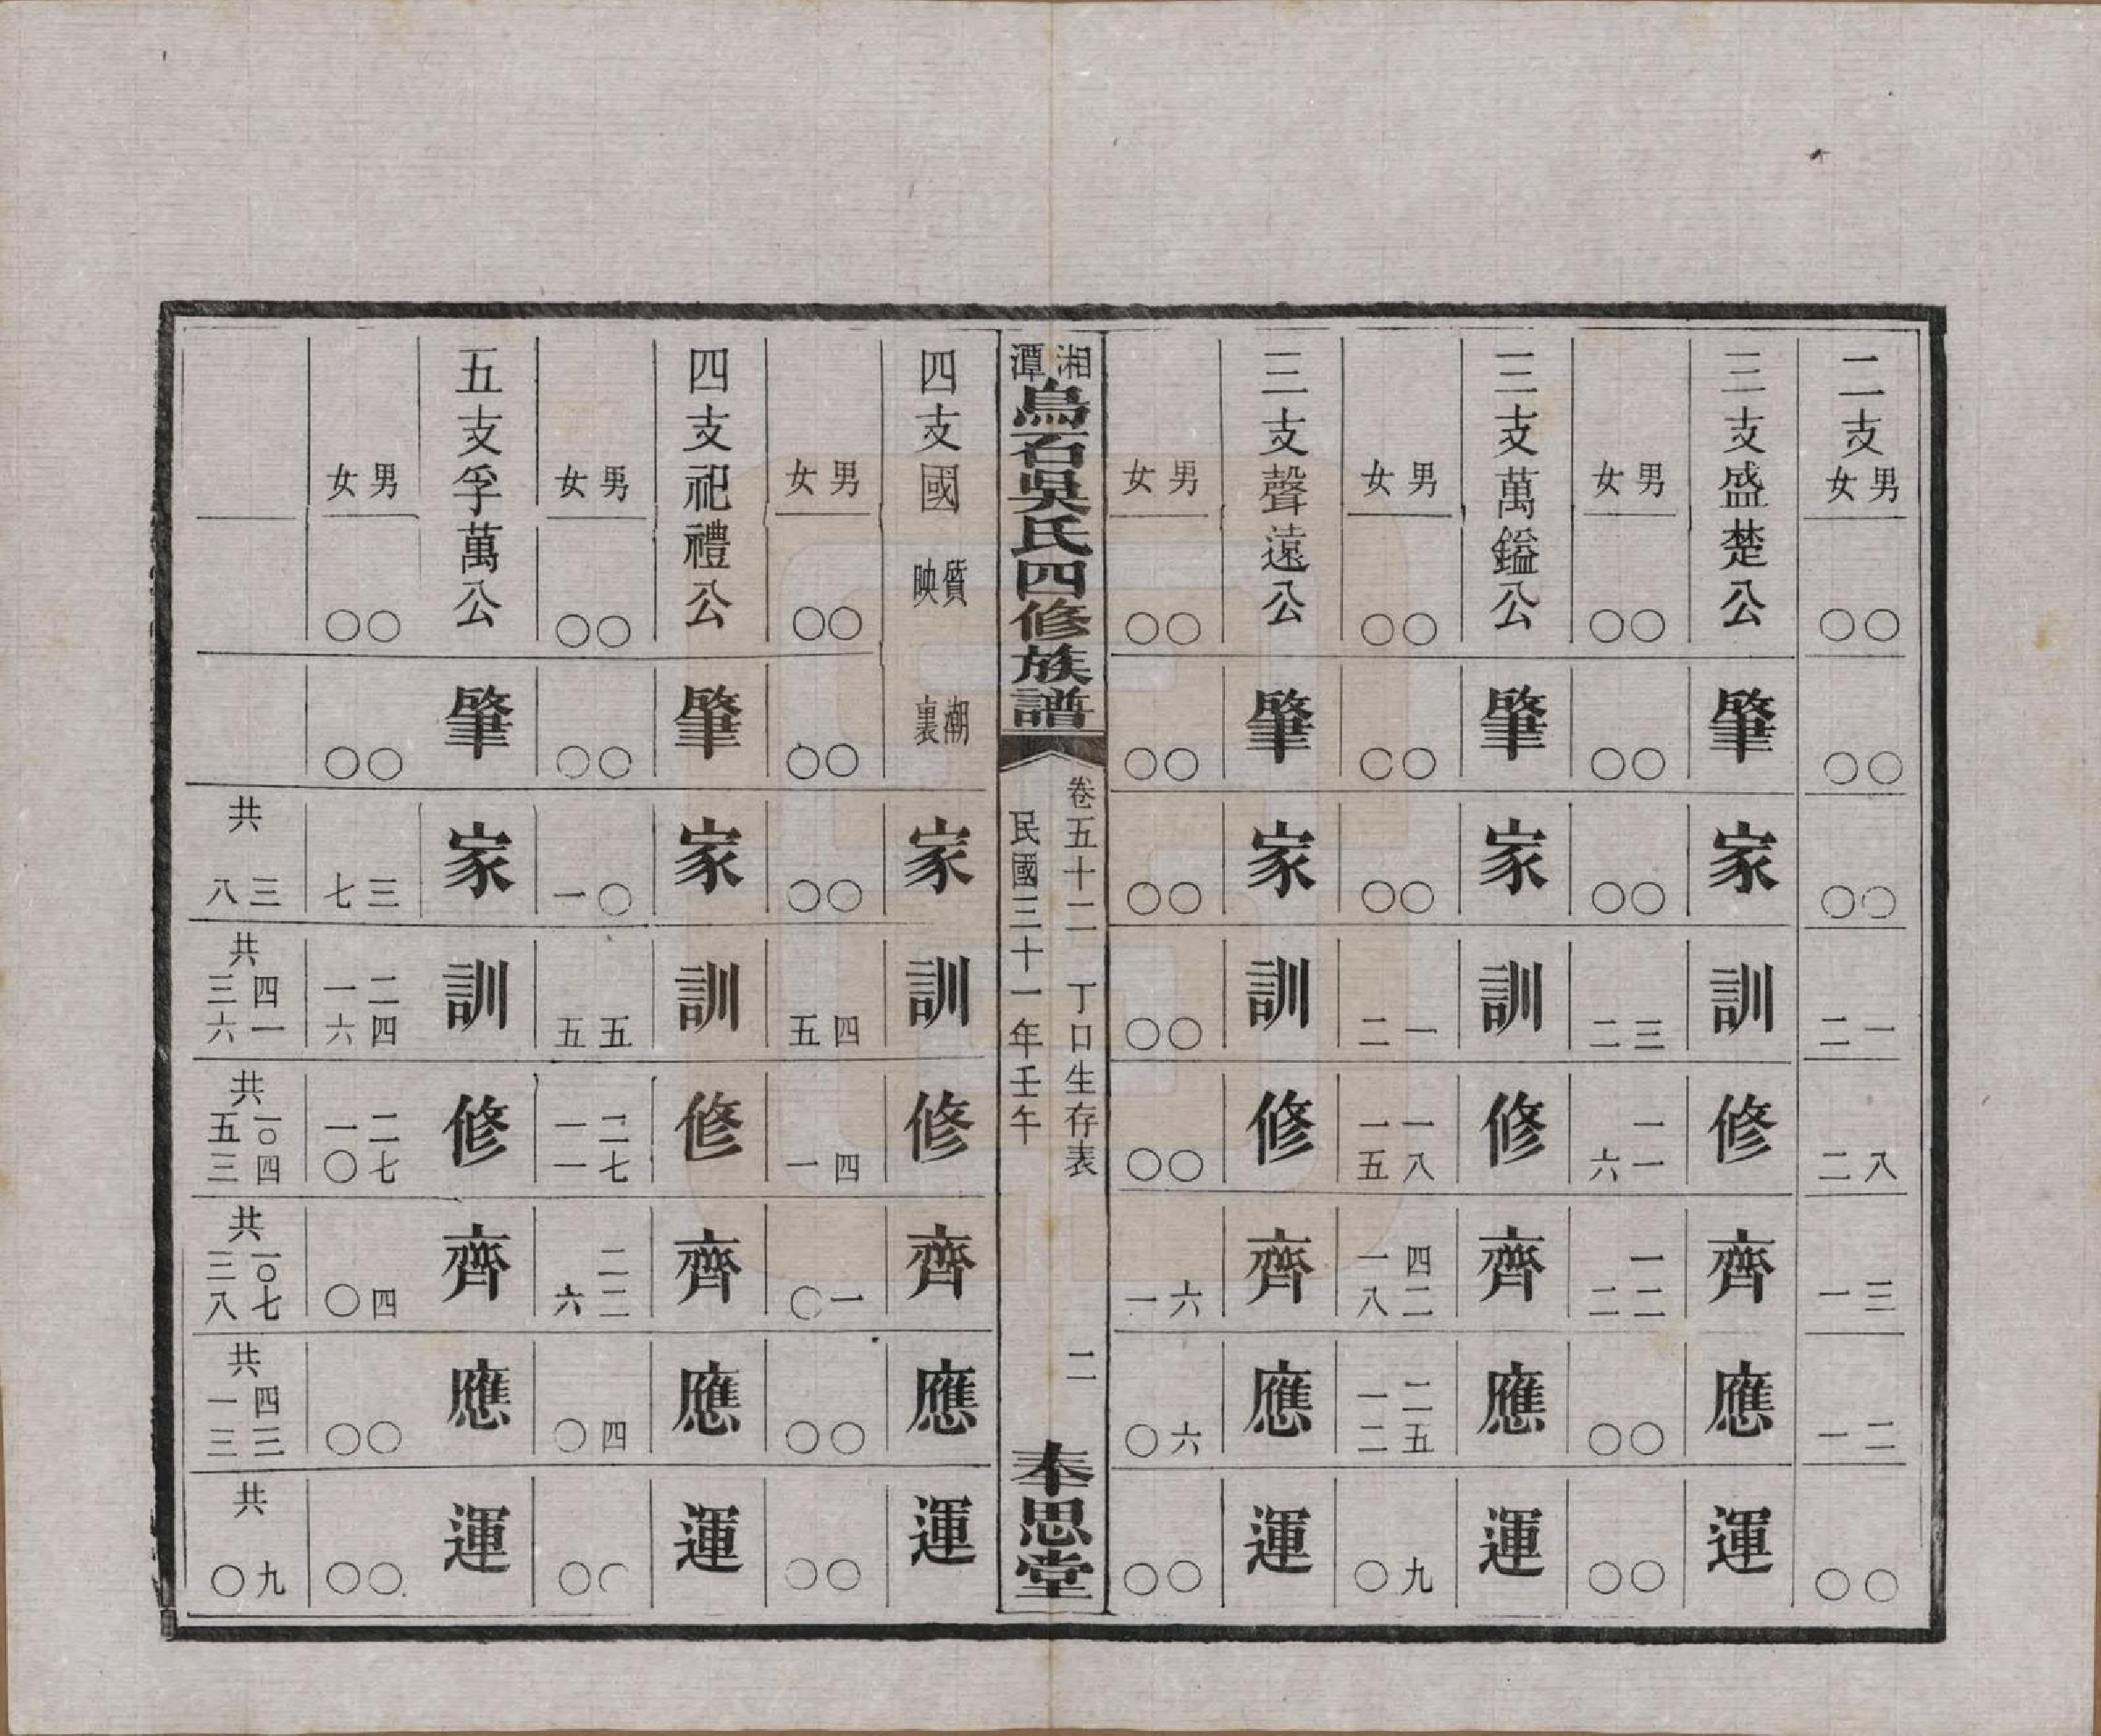 二支 男女 〇〇 〇〇 〇〇 一二 八二 三一 二一 〇〇
三支盛楚公 肇 家 訓 修 齊 應 運
男女 〇〇 〇〇 〇〇 三二 一一六 一二二 〇〇 〇〇
三支萬鎰公 肇 家 訓 修 齊 應 運
男女 〇〇 〇〇 〇〇 一二 一八一五 四二一八 二五一二 九〇
三支聲遠公 肇 家 訓 修 齊 應 運
男女 〇〇 〇〇 〇〇 〇〇 〇〇 六一 六〇 〇〇
湘潭烏石吳氏四修族譜
卷五十二 丁口生存表 二
民國三十一年壬午
奉思堂
四支國 質映 潮裏 家 訓 修 齊 應 運
男女 〇〇 〇〇 〇〇 四五 四一 一〇 〇〇 〇〇
四支祀禮公 肇 家 訓 修 齊 應 運
男女 〇〇 〇〇 〇一 五五 二七一一 二二六 四〇 〇〇
五支孚萬公 肇 家 訓 修 齊 應 運
男女 〇〇 〇〇 三七 二四一六 二七一〇 四〇 〇〇 〇〇
共三八 共四一三六 共一〇四五三 共一〇七三八 共四三一三 共九〇